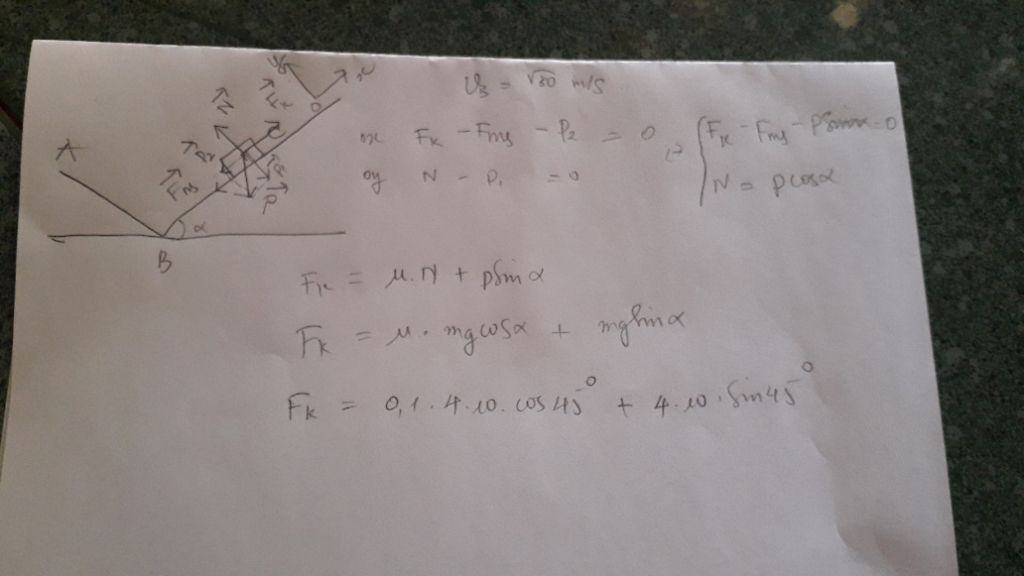 A
B
C
α
N
Fk
Fms
P
O
x
y
υB = √30 m/s
ox Fk - Fms - P2 = 0
oy N - P1 = 0
Fk - Fms - Psinα = 0
N = Pcosα
Fk = μ.N + Psinα
Fk = μ. mgcosα + mgsinα
Fk = 0,1.4.10.cos45° + 4.10.sin45°